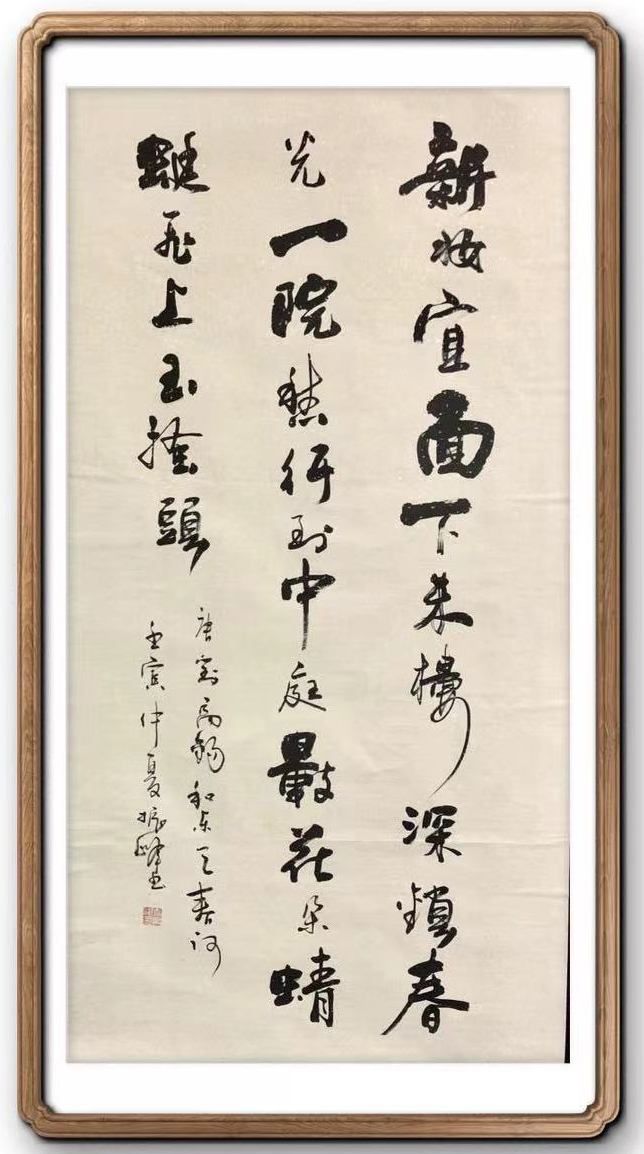 新妝宜面下朱樓深鎖春
光一院愁行到中庭數花朵蜻
蜓飛上玉搔頭
唐劉禹錫和樂天春詞
壬寅仲夏振峰書